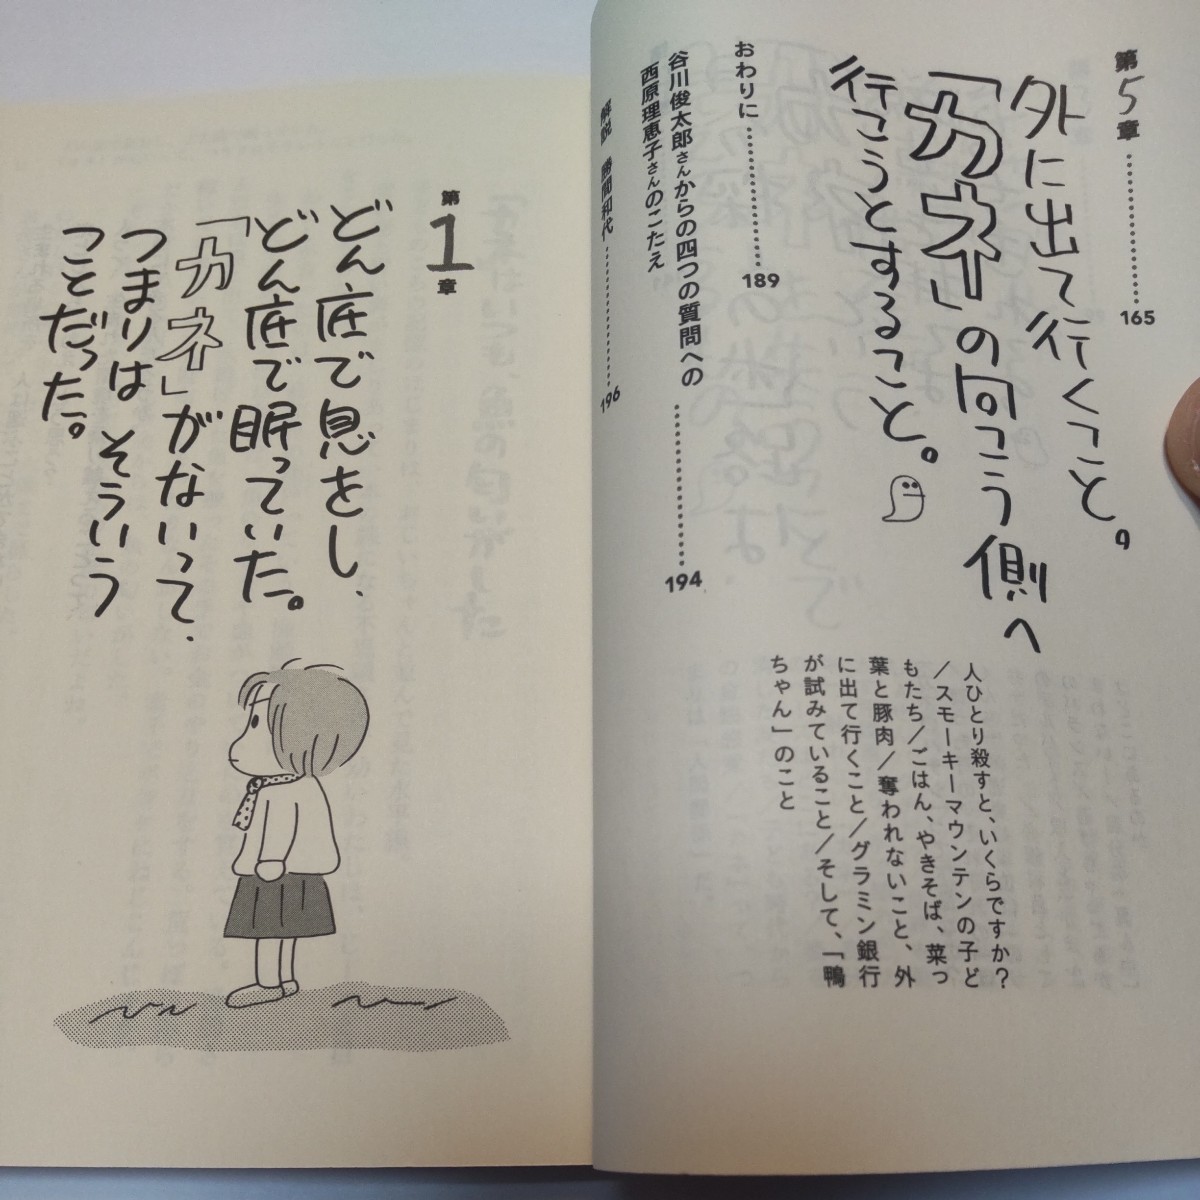 第5章…………165
外に出て行くこと。
「カネ」の向こう側へ
行こうとすること。
人ひとり殺すと、いくらですか?
/スモーキーマウンテンの子ど
もたち/ごはん、やきそば、菜っ
葉と豚肉/奪われないこと、外
に出て行くこと/グラミン銀行
が試みていること/そして、「鴨
ちゃん」のこと
おわりに…………189
谷川俊太郎さんからの四つの質問への
西原理恵子さんのこたえ…………194
解説 勝間和代…………196
第1章
どん底で息をし、
どん底で眠っていた。
「カネ」がないって、
つまりは そういう
ことだった。